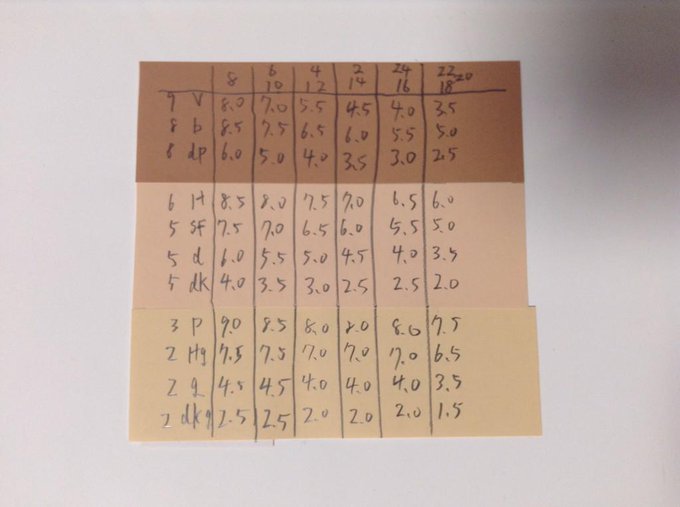 6 4 2 24 22 20
8 10 12 14 16 18
9 V 8.0 7.0 5.5 4.5 4.0 3.5
8 b 8.5 7.5 6.5 6.0 5.5 5.0
8 dp 6.0 5.0 4.0 3.5 3.0 2.5
6 H 8.5 8.0 7.5 7.0 6.5 6.0
5 sf 7.5 7.0 6.5 6.0 5.5 5.0
5 d 6.0 5.5 5.0 4.5 4.0 3.5
5 dk 4.0 3.5 3.0 2.5 2.5 2.0
3 P 9.0 8.5 8.0 8.0 8.0 7.5
2 Hg 7.5 7.5 7.0 7.0 7.0 6.5
2 g 4.5 4.5 4.0 4.0 4.0 3.5
2 dkg 2.5 2.5 2.0 2.0 2.0 1.5